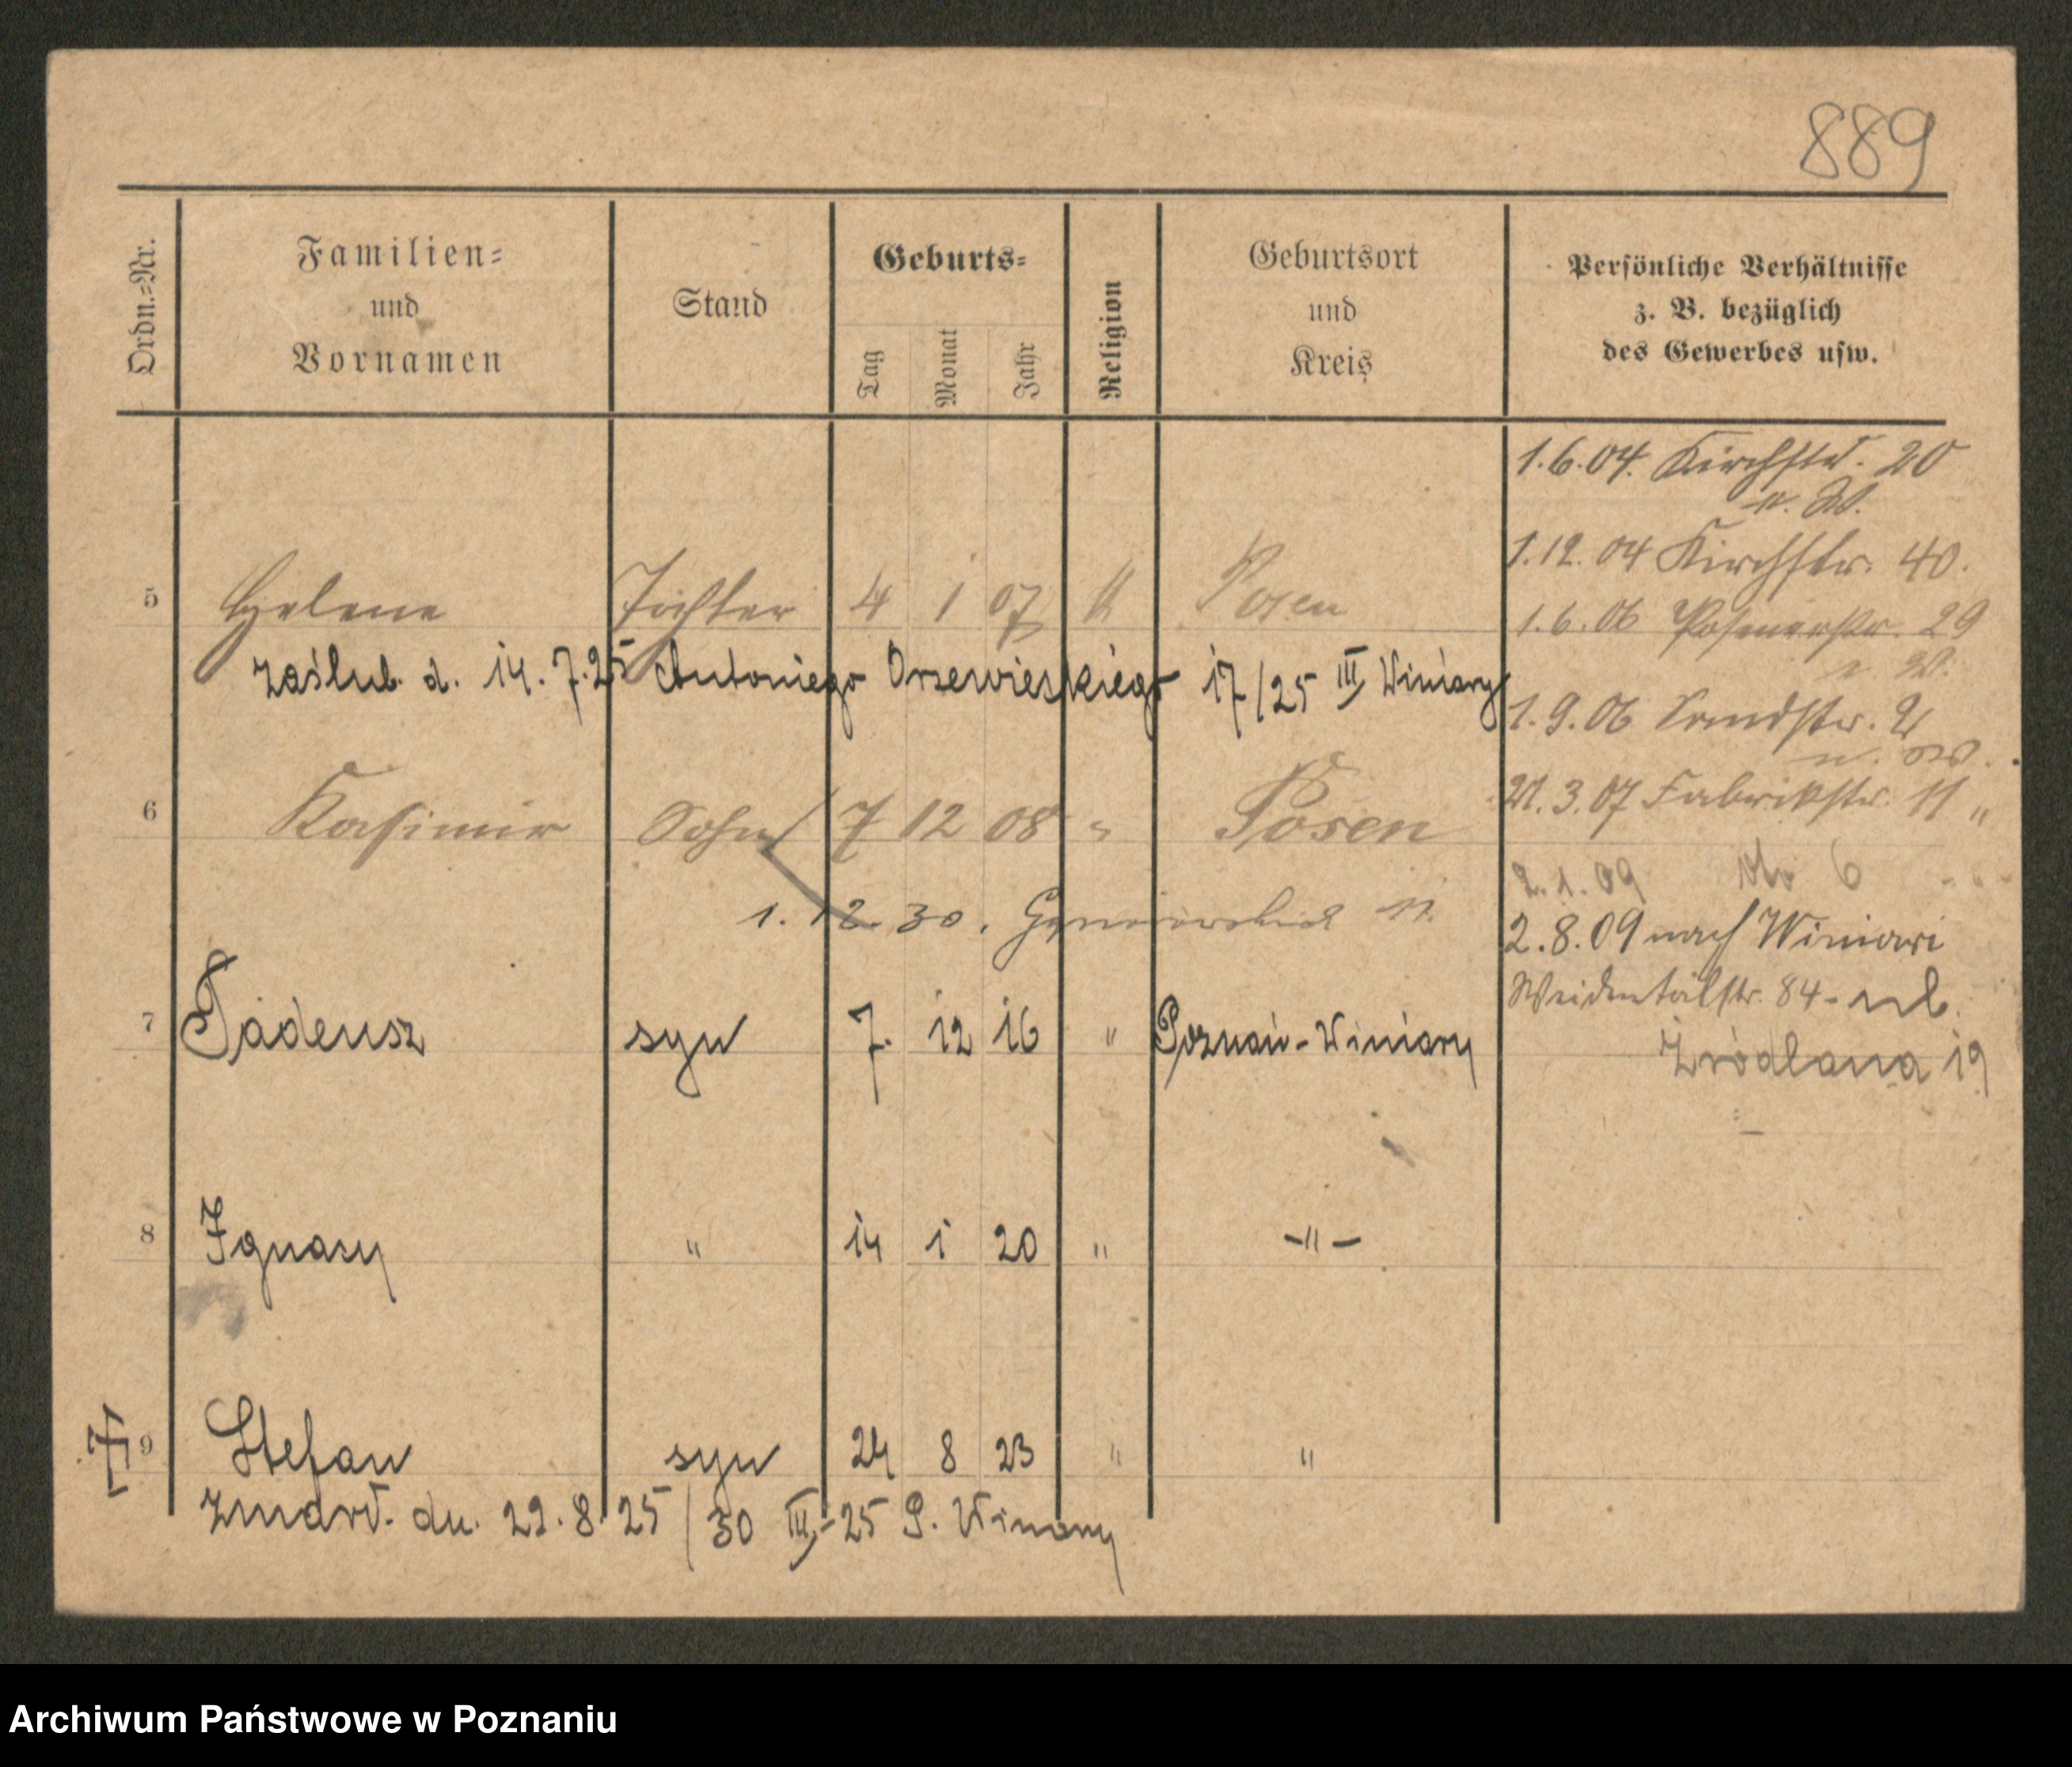 889
Ordn.-Nr.
Familien-
und
Vornamen
Stand
Geburts-
Tag
Monat
Jahr
Religion
Geburtsort
und
Kreis
Persönliche Verhältnisse
z. B. bezüglich
des Gewerbes usw.
1.6.04. Kirchstr. 20
n. W.
1.12.04 Kirchstr. 40.
5 Helene Tochter 4 1 07 k Posen
1.6.06 Posenerstr. 29
n. W.
zaślub. d. 14.7.25 Antoniego 17/25 III Winiary
1.9.06 Sandstr. 2
21.3.07 Fabrikstr. 11 "
6 Kasimir Sohn 7 12 08 " Posen
2.1.09 6
1.12.30. 11.
2.8.09 nach Winiari
Weidentalstr. 84
7 Tadeusz syn 7. 12 16 " Poznań-Winiary
Źródlana 19
8 Ignacy " 14 1 20 " -"-
9 Stefan syn 24 8 23 " "
zmarł. dn. 29.8.25/30 III-25 P. Winiary
Archiwum Państwowe w Poznaniu